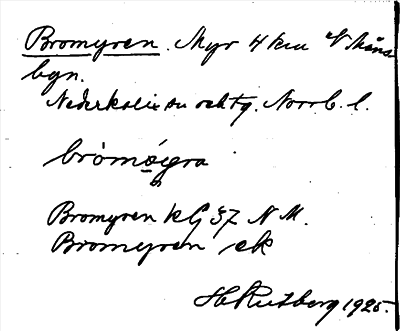 Bromyren. Myr 4 km V Måns-
byn.
Nederkalix sn och tg. Norrb. l.
bròmø̀gra
Bromyren kG 37 N M.
Bromyren ek
H Rutberg 1925.